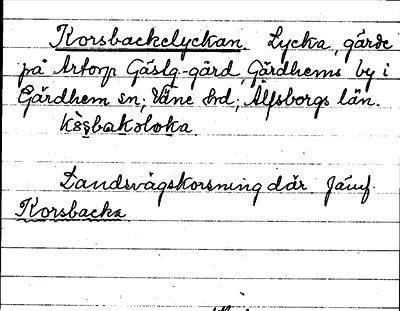 Korsbackelyckan. Lycka, gärde
på Artorp Gäslg-gård, Gärdhems by i
Gärdhem sn; Väne hd; Älfsborgs län.
Landsvägskorsning där. Jämf.
Korsbacka